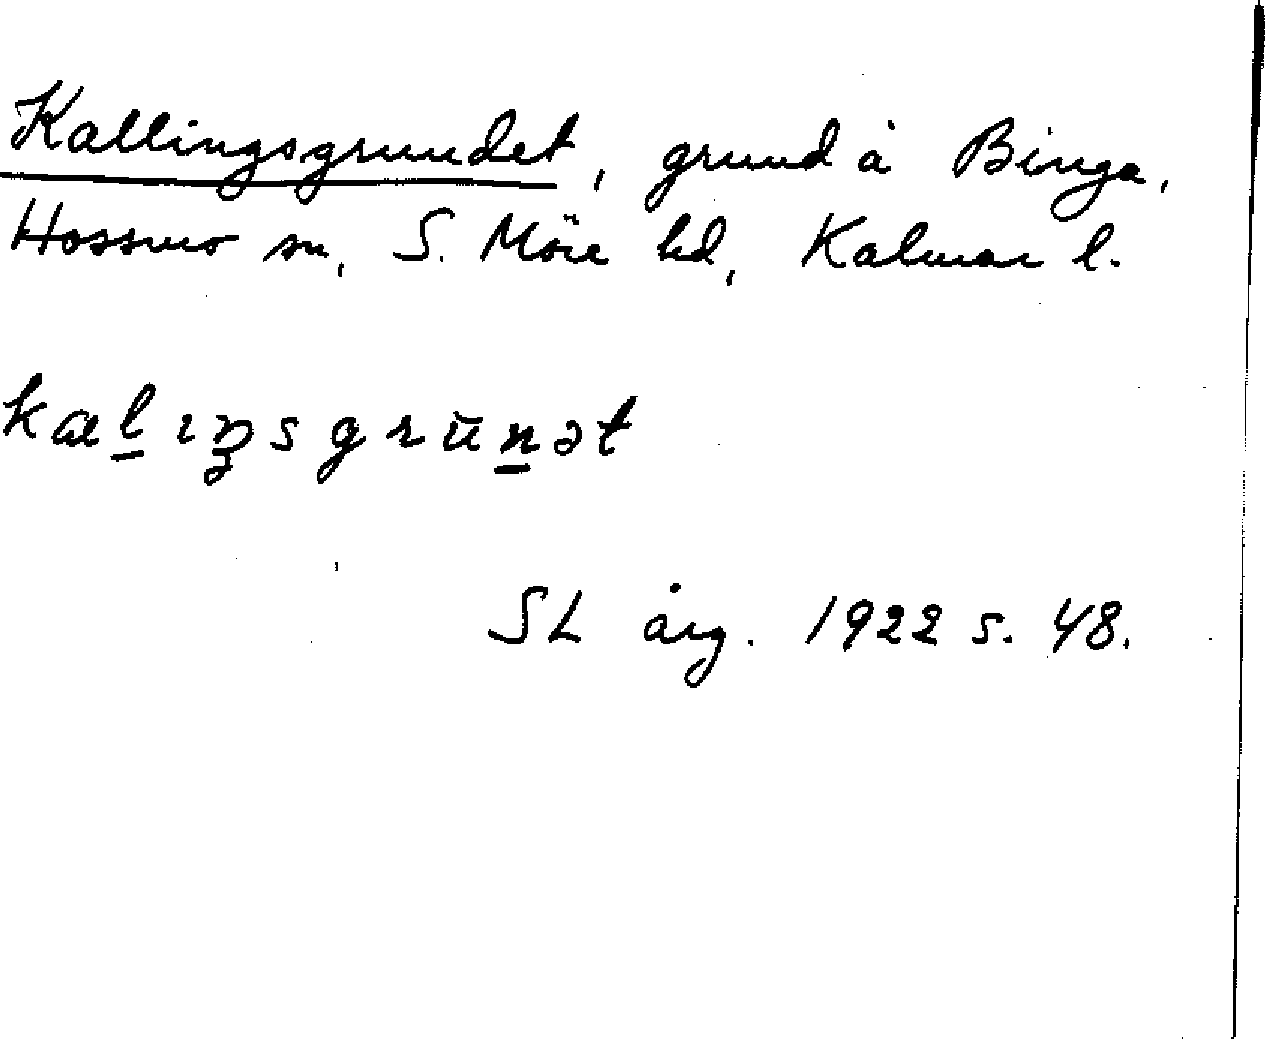 Kallingsgrundet, grund å Binga,
Hossmo sn, S. Möre hd, Kalmar l.
kal̲ıŋsgrūn̲ət
SL årg. 1922 s. 48.